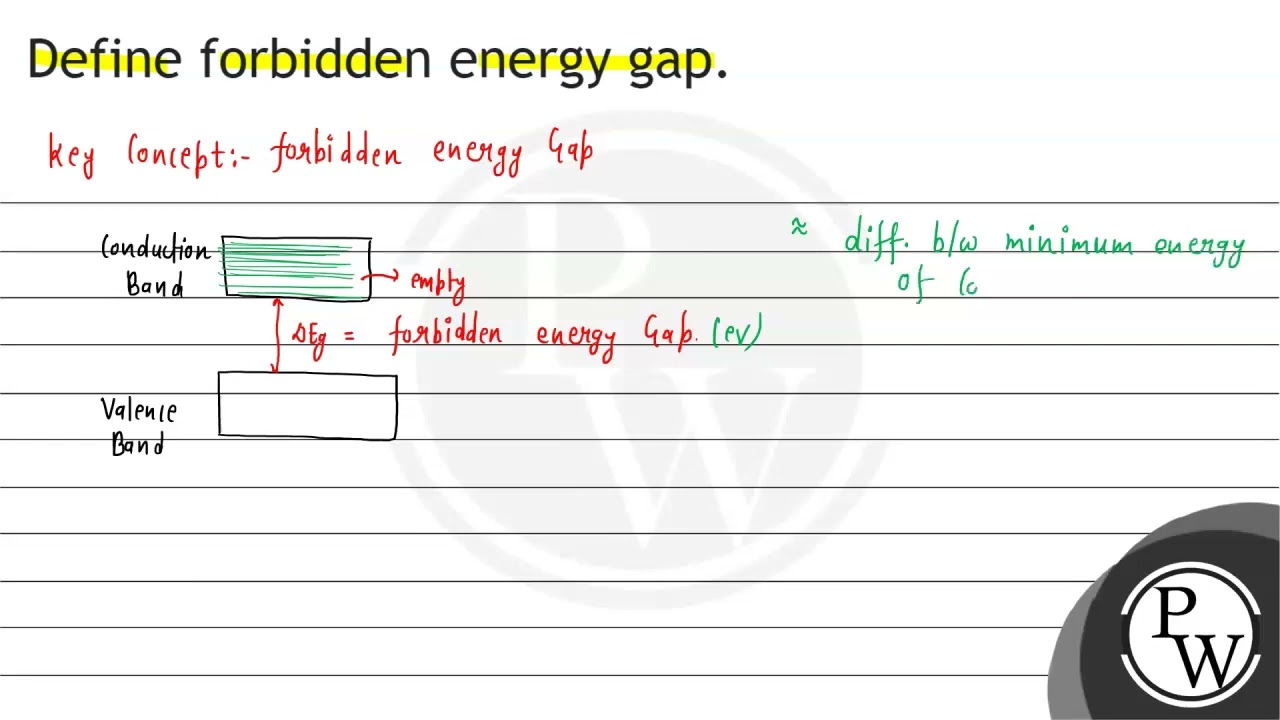 Define forbidden energy gap.
Key Concept:- forbidden energy Gap
Conduction
Band
→ empty
≈ diff. b/w minimum energy
of Co
ΔEg = forbidden energy Gap. (eV)
Valence
Band
PW
PW